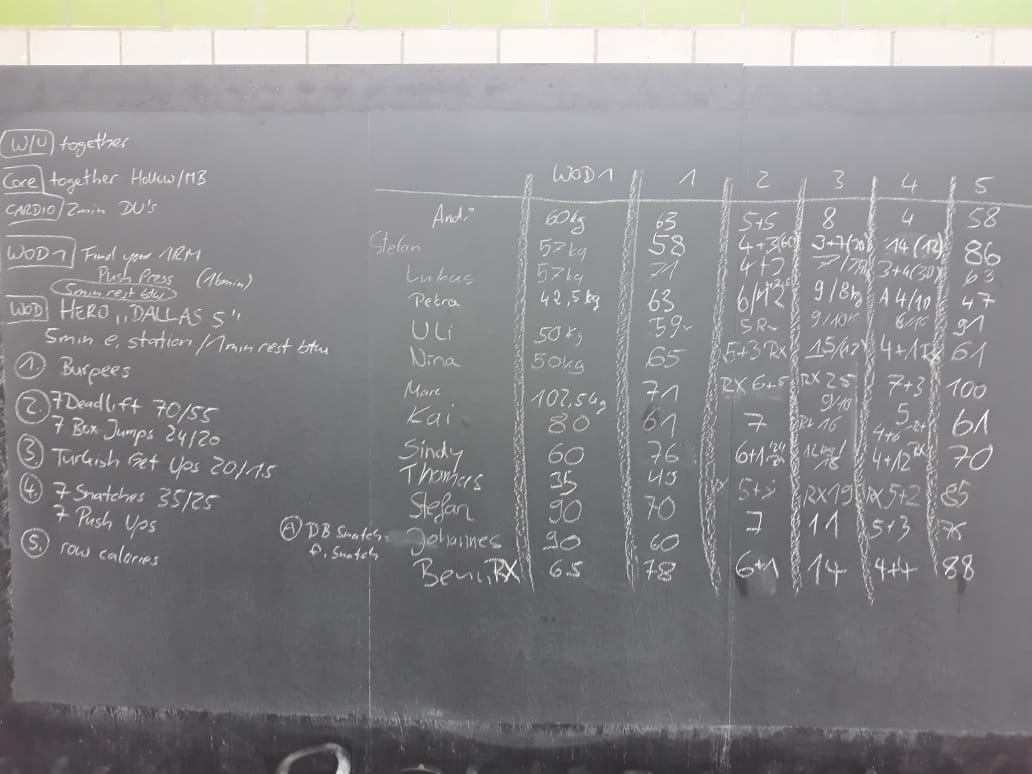 W/U together
Core together Hollow/MB
CARDIO 2min DU's
WOD1 Find your 1RM
Push Press (16min)
5min rest btw
WOD HERO „DALLAS 5"
5min e. station / 1min rest btw
1. Burpees
2. 7 Deadlift 70/55
7 Box Jumps 24/20
3. Turkish Get Ups 20/15
4. 7 Snatches 35/25
7 Push Ups
5. row calories
A DB Snatch
WOD1 1 2 3 4 5
Andi 60kg 63 5+5 8 4 58
Stefan 57kg 58 4+3(60) 14(12) 86
Lukas 57kg 71 63
Petra 42,5kg 63 9/8kg 4/10 47
Uli 50kg 59 91
Nina 50kg 65 5+3 RX 61
Marc 102,5kg 71 RX 6+5 RX 25 7+3 100
Kai 80 61 7 5 61
Sindy 60 76 6+1 4+12 70
Thomas 35 85
Stefan 90 70 RX19 RX5+2
Johannes 90 60 7 11 5+3
Beni, RX 65 78 6+1 14 4+4 88